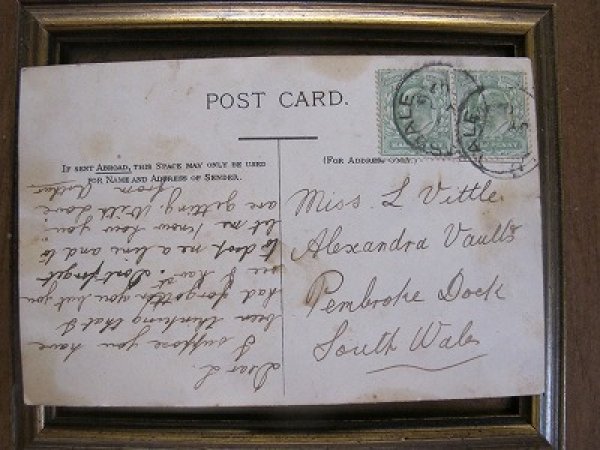 POST CARD.
IF SENT ABROAD, THIS SPACE MAY ONLY BE USED
FOR NAME AND ADDRESS OF SENDER.
(FOR ADDRESS ONLY.)
Dear L.
I suppose you have
been thinking that I
had forgotten you but you
see I . Dont forget
to drop me a line and to
let me know how you
are getting. With Love
from Arthur
Miss L Vittle
Alexandra Vaults
Pembroke Dock
South Wales